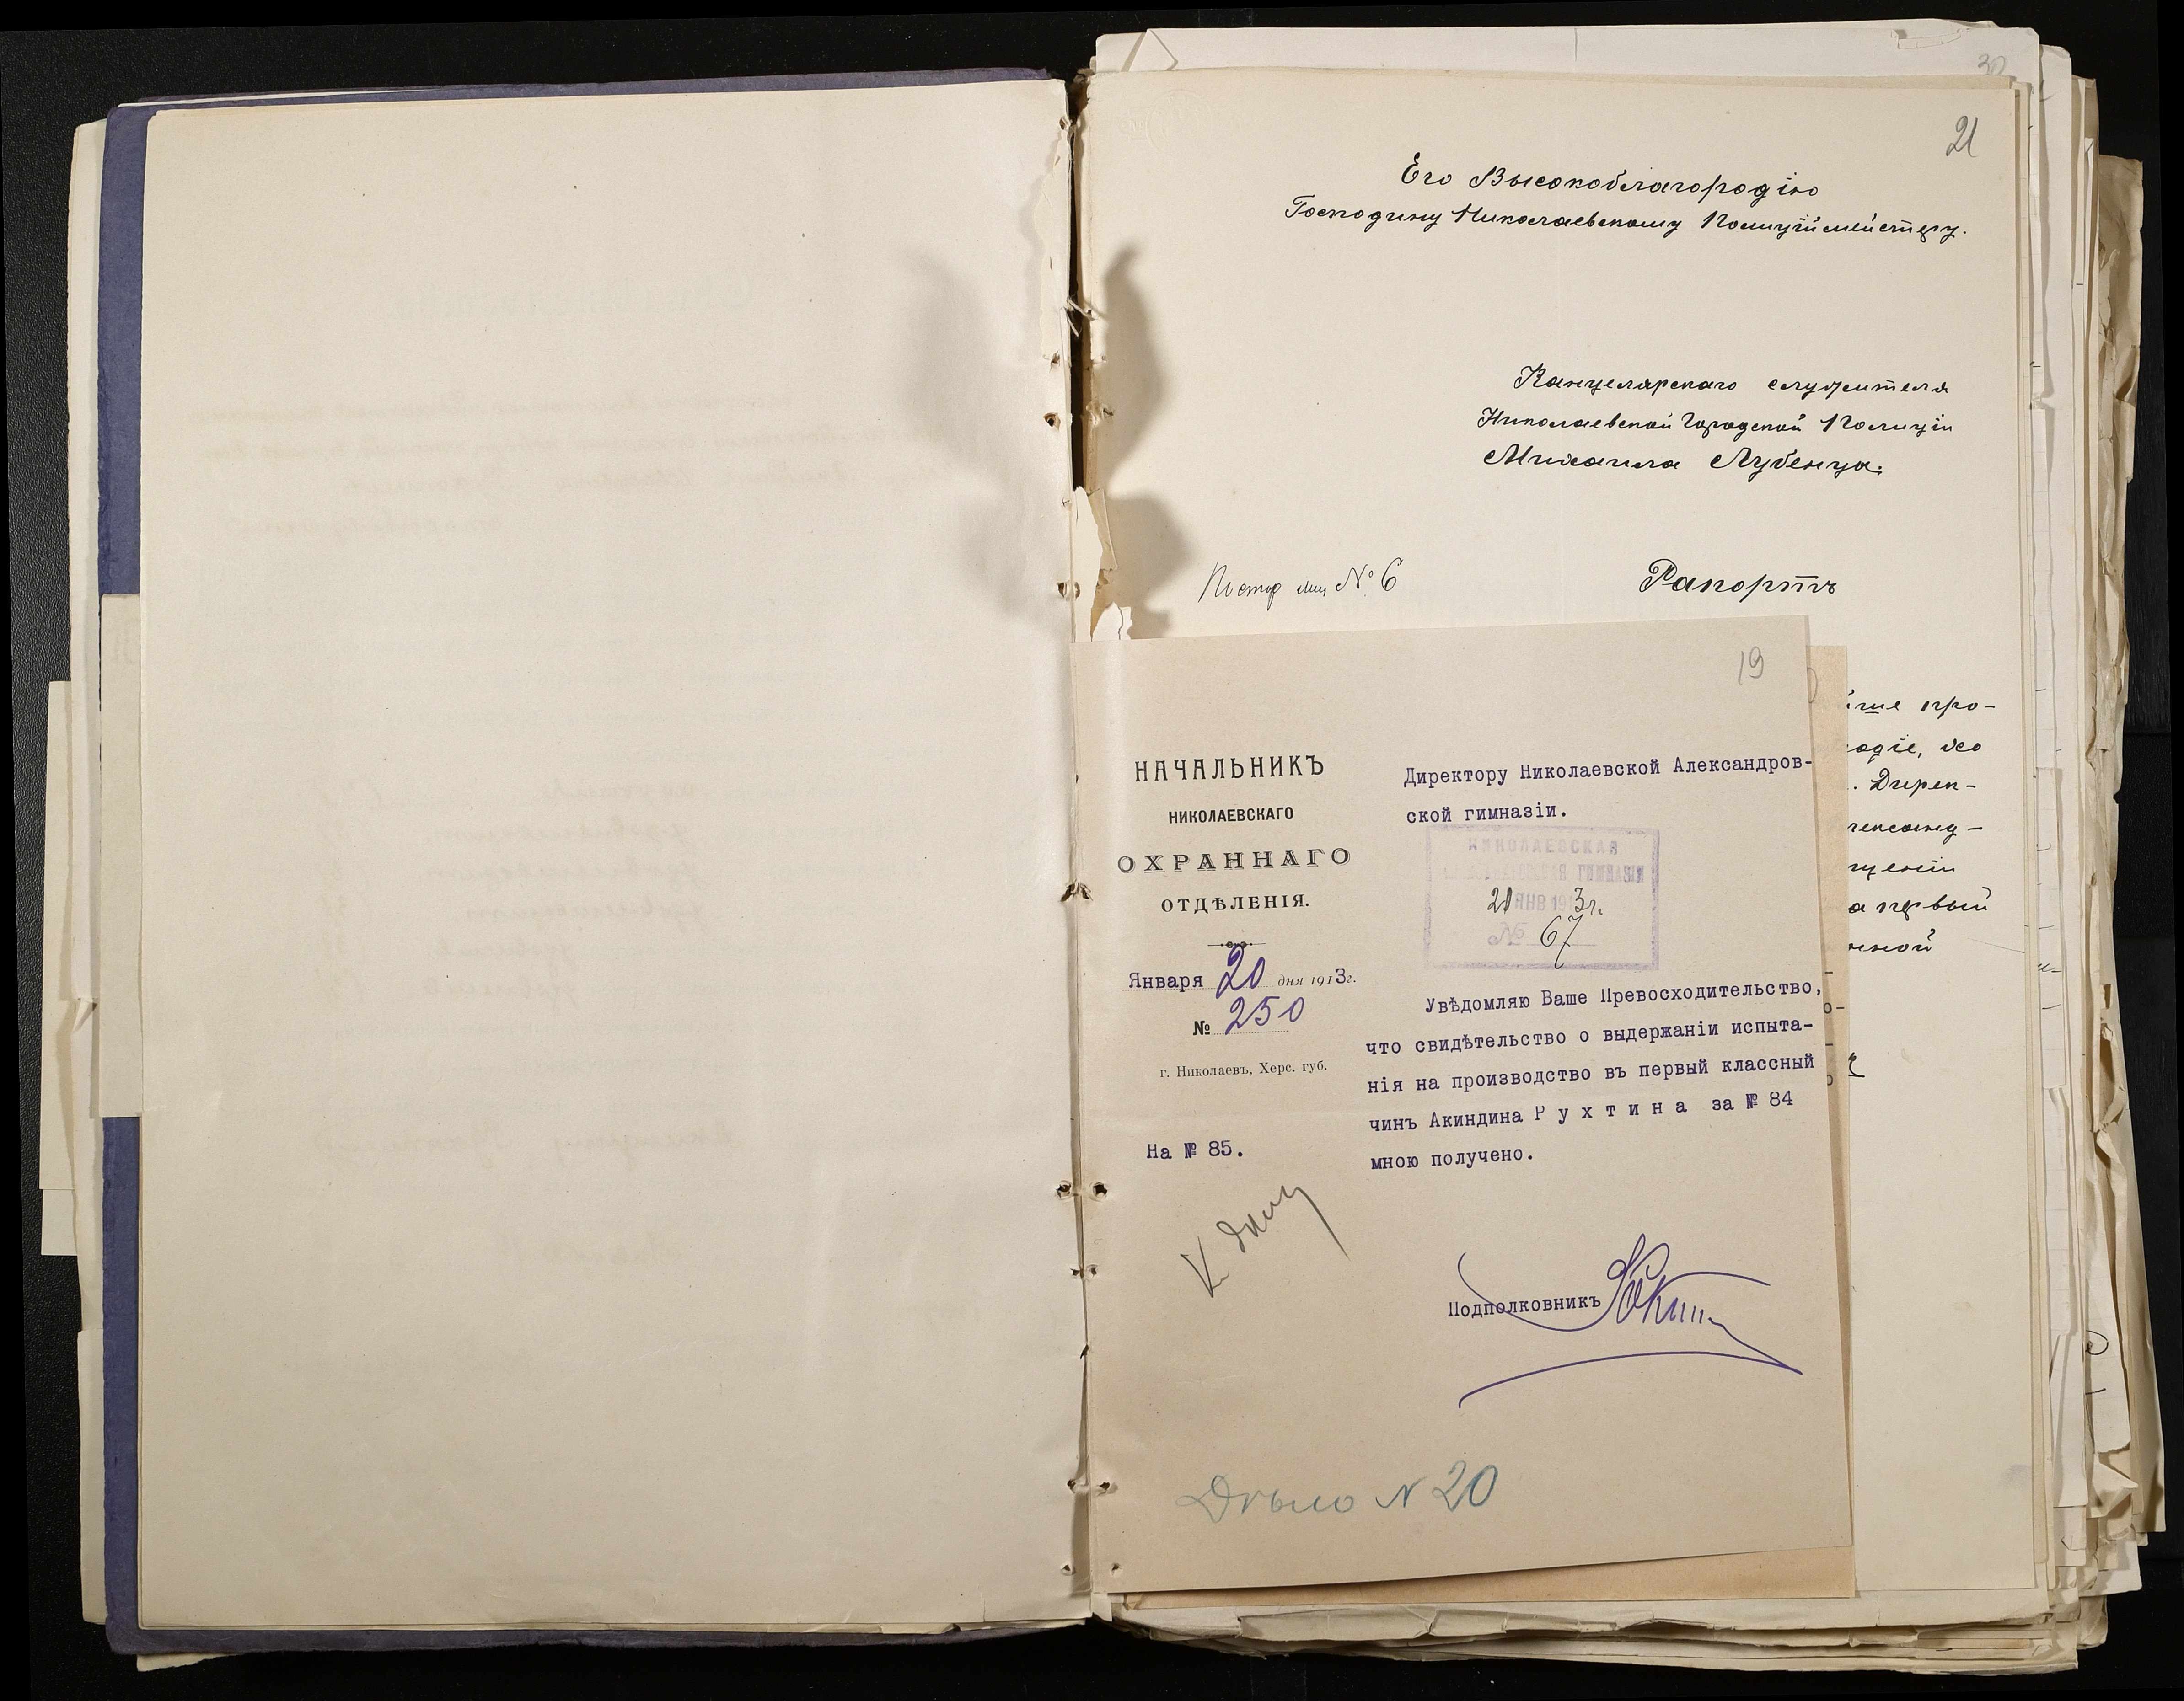 21
Его Высокоблагородію
Господину Николаевскому Полиціймейстеру.
Канцелярскаго служителя
Николаевской Городской Полиціи
Михаила Лубенца.
№ 6
Рапортъ
про-
одіе, хо
. Дирек-
ександ-
щеніи
а первый
нной
19
НАЧАЛЬНИКЪ
НИКОЛАЕВСКАГО
ОХРАННАГО
ОТДѢЛЕНІЯ.
Января 20 дня 1913г.
№ 250
г. Николаевъ, Херс. губ.
На № 85.
Директору Николаевской Александров-
ской гимназіи.
НИКОЛАЕВСКАЯ
ГИМНАЗІЯ
21 ЯНВ 1913г.
№ 67
Увѣдомляю Ваше Превосходительство,
что свидѣтельство о выдержаніи испыта-
нія на производство въ первый классный
чинъ Акиндина Рухтина за № 84
мною получено.
К делу
Подполковникъ
Дѣло N 20